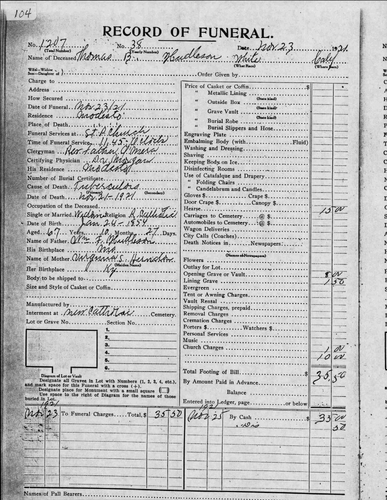 104
RECORD OF FUNERAL.
No. 1207 No. 38 Date Nov. 23 1921
(Total Number) (Yearly Number)
Name of Deceased Thomas B. White
(What Race) (Where Born)
Charge to Order Given by
Address
How Secured
Date of Funeral Nov 23/21
Residence Modesto
Place of Death
Funeral Services at Church
Time of Funeral Service 11:45
Clergyman Rev. Father
Certifying Physician Dr Morgan
His Residence Modesto
Number of Burial Certificate
Cause of Death Tuberculosis
Date of Death Nov 21-1921
Occupation of the Deceased
Single or Married Religion
Date of Birth Jan 24-1854
Aged 67 Years 10 Months 27 Days
Name of Father
His Birthplace Mo
Name of Mother
Her Birthplace Ky
Body to be shipped to
Size and Style of Casket or Coffin
Manufactured by
Interment at Cemetery.
Lot or Grave No. Section No.
1
2
3
4
5
6
Diagram of Lot or Vault
Designate all Graves in Lot with Numbers (1, 2, 3, 4, etc.), and mark space for this Funeral with a cross (+).
Designate place for Monument with a small square
Use space to the right of Diagram for the names of those buried in Lot.
Price of Casket or Coffin
" Metallic Lining
" Outside Box
" Grave Vault
" Burial Robe
" Burial Slippers and Hose
Engraving Plate
Embalming Body (with Fluid)
Washing and Dressing
Shaving
Keeping Body on Ice
Disinfecting Rooms
Use of Catafalque and Drapery
" Folding Chairs
" Candelabrum and Candles
Gloves $ Crape $
Door Crape $ Canopy $
Hearse 15 00
Carriages to Cemetery @ $
Automobiles to Cemetery @ $
Wagon Deliveries
City Calls (Coaches)
Death Notices in Newspapers
(Names of Newspapers)
Flowers
Outlay for Lot
Opening Grave 8 00
Lining Grave 1 50
Evergreen
Tent or Awning Charges
Vault Rental
Shipping Charges, prepaid
Removal Charges
Cremation Charges
Porters $ Watchers $
Personal Services
Music
Church Charges 1 00
10 00
Total Footing of Bill $ 35 50
By Amount Paid in Advance
Balance
Entered into Ledger, page or below
1921 1921
Nov 23 To Funeral Charges, Total, $ 35 50 Nov 25 By Cash $ 35 00
50
Names of Pall Bearers